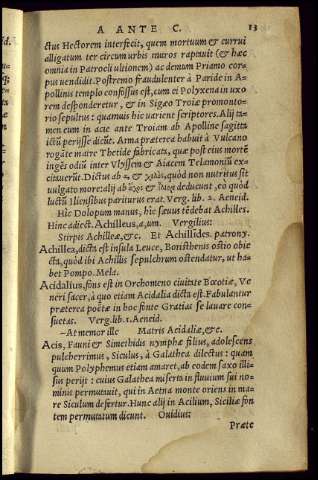 A ANTE C. 13
ctus Hectorem interfecit, quem mortuum & currui
alligatum ter circum urbis muros raptauit (& hæc
omnia in Patrocli ultionem) ac demum Priamo cor-
pus uendidit. Postremo fraudulenter à Paride in A-
pollinis templo confossus est, cum ei Polyxena in uxo
rem desponderetur, & in Sigæo Troiæ promonto-
rio sepultus: quamuis hic uarient scriptores. Alij ta
men eum in acie ante Troiam ab Apolline sagitta
ictũ perijsse dicũt. Arma præterea habuit à Vulcano
rogatu matre Thetide fabricata, quæ post eius mortẽ
ingẽs odiũ inter Vlyssem & Aiacem Telamoniũ ex-
citauerũt. Dictus ab & quòd non nutritus sit
uulgato more: alij ab & deducunt, eò quòd
luctũ Iliensibus pariturus erat. Verg. lib. 2. Aeneid.
Hîc Dolopum manus, hîc sæuus tẽdebat Achilles.
Hinc adiect. Achilleus, a, um. Vergilius:
Stirpis Achilleæ, &c. Et Achillides. patrony.
Achillea, dicta est insula Leuce, Boristhenis ostio obie
cta, quòd ibi Achillis sepulchrum ostendatur, ut ha
bet Pompo. Mela.
Acidalius, fons est in Orchomeno ciuitate Bœotiæ, Ve
neri sacer, à quo etiam Acidalia dicta est. Fabulantur
præterea poëtæ in hoc fonte Gratias se lauare con-
suetas. Verg. lib. 1. Aeneid.
—At memor ille Matris Acidaliæ, &c.
Acis, Fauni & Simethidis nymphæ filius, adolescens
pulcherrimus, Siculus, à Galathea dilectus: quam
quum Polyphemus etiam amaret, ab eodem saxo illi-
sus perijt: cuius Galathea miserta in fluuium sui no-
minis permutauit, qui in Aetna monte oriens in ma-
re Siculum defertur. Hunc alij in Acilium, Siciliæ fon
tem permutatum dicunt. Ouidius:
Præte